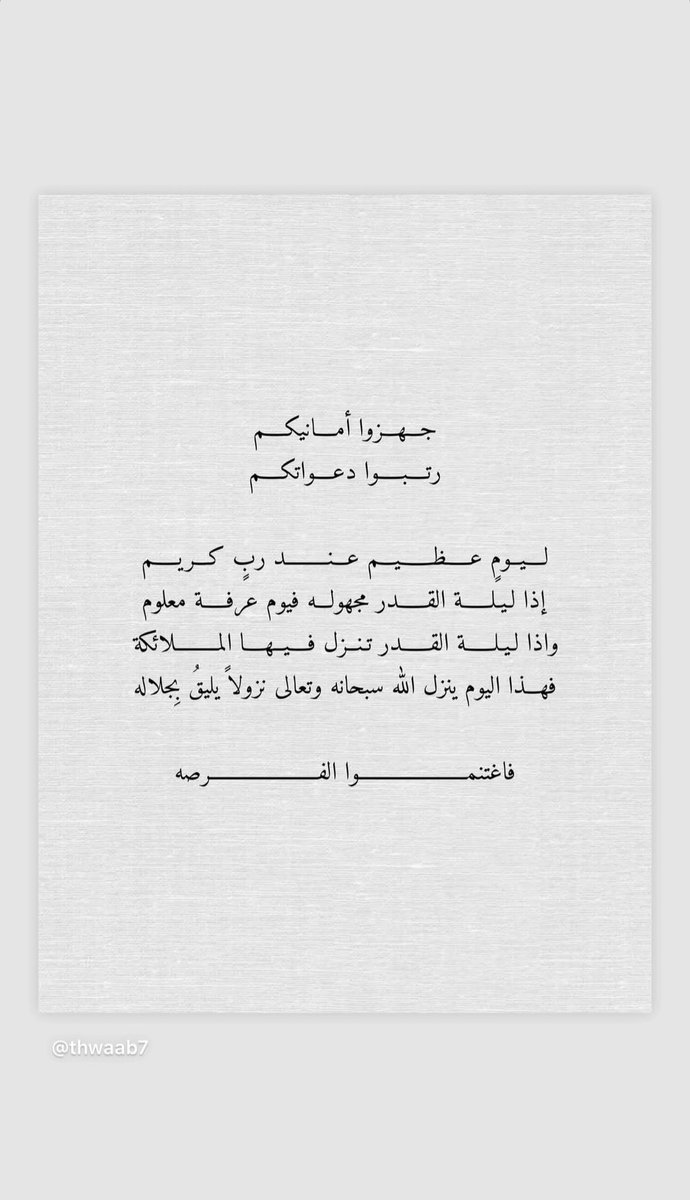 جهزوا أمانيكم
رتبوا دعواتكم
ليومٍ عظيم عند ربٍ كريم
إذا ليلة القدر مجهوله فيوم عرفة معلوم
واذا ليلة القدر تنزل فيها الملائكة
فهذا اليوم ينزل الله سبحانه وتعالى نزولاً يليقُ بِجلاله
فاغتنموا الفرصه
@thwaab7